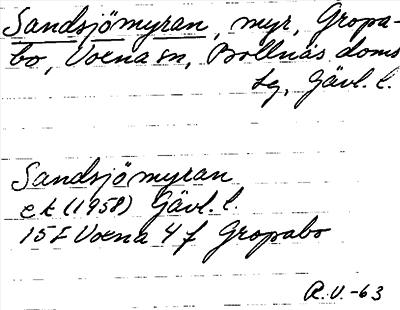 Sandsjömyran, myr, Gropa-
bo, Voxna sn, Bollnäs doms
sg, Gävl. l.
Sandsjömyran
ek (1958) Gävl. l.
15E Voxna 4 f Gropabo
R.V.-63